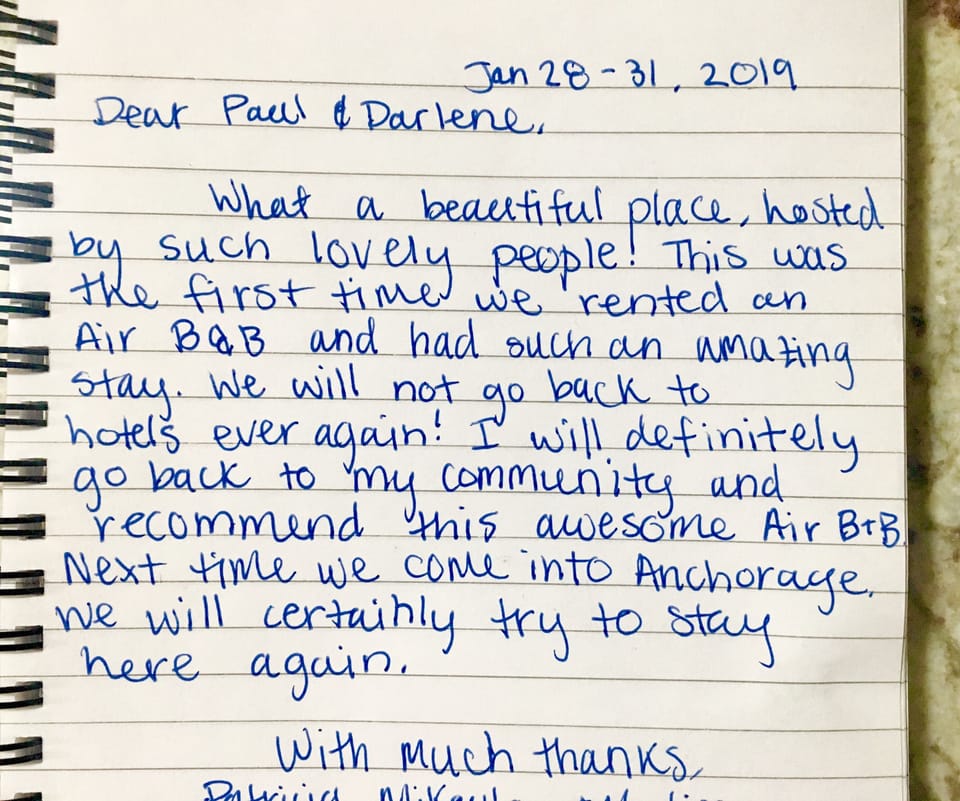 Jan 28 - 31, 2019
Dear Paul & Darlene,
What a beautiful place, hosted
by such lovely people! This was
the first time we rented an
Air B&B and had such an amazing
stay. We will not go back to
hotels ever again! I will definitely
go back to my community and
recommend this awesome Air B+B.
Next time we come into Anchorage,
we will certainly try to stay
here again.
With much thanks,